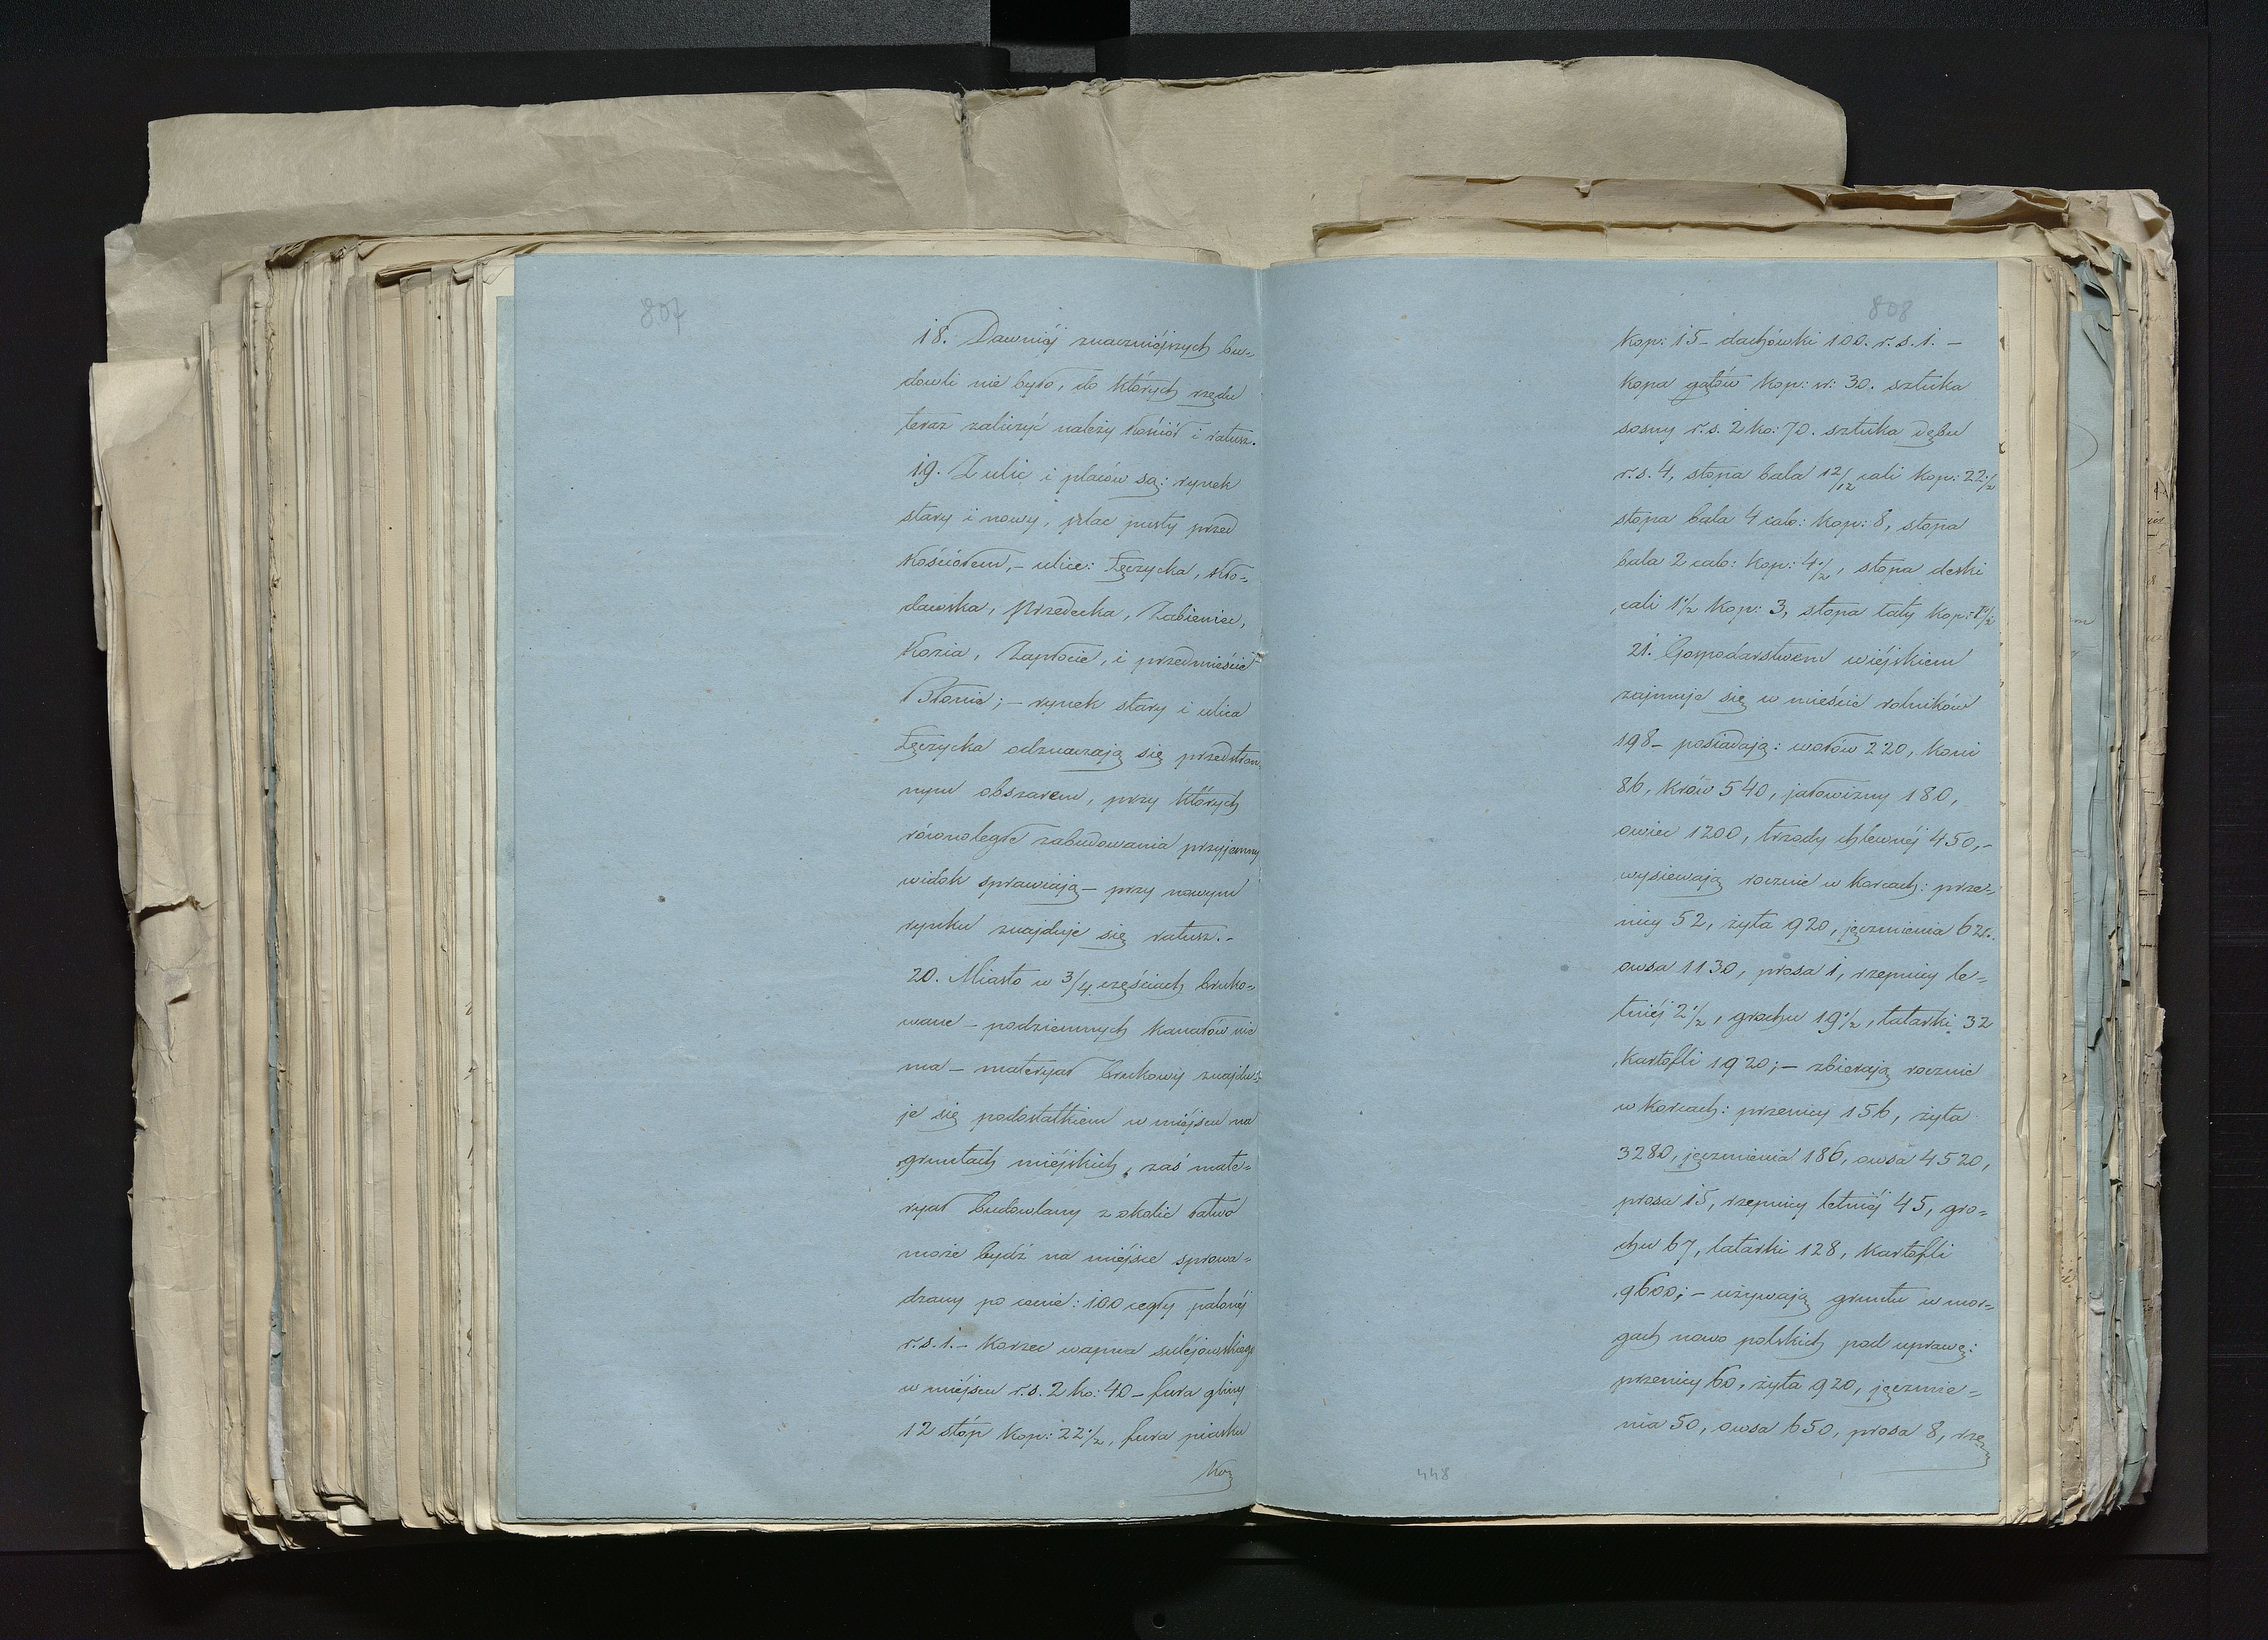 807
18. Dawniéj znaczniéjszych bu=
dowli nie było, do których rzędu
teraz zaliczyć należy kościół i ratusz.
19. Z ulic i placów są: rynek
stary i nowy, plac pusty przed
kościołem, – ulice: Łęczycka, Kło=
dawska, Przedecka, Żabieniec,
Kozia, Zapłocie, i przedmieście
Błonie; – rynek stary i ulica
Łęczycka odznaczają się przedstron=
nym obszarem, przy których
równoległe zabudowania przyjemny
widok sprawiają – przy nowym
rynku znajduje się ratusz. –
20. Miasto w 3/4 częściach bruko=
wane – podziemnych kanałów nie
ma – materyał brukowy znajdu=
je się podostatkiem w miéjscu na
gruntach miéjskich, zaś mate=
ryał budowlany z okolic łatwo
może bydź na miéjsce sprowa=
dzany po cenie: 100 cegły palonéj
r.s. 1. – Korzec wapna suléjowskiego
w miéjscu r.s. 2 ko: 40 – fura gliny
12 stóp kop: 22 1/2, fura piasku
Kop
808
Kop: 15 – dachówki 100. r.s. 1. –
kopa gątów kop: sr: 30. sztuka
sosny r.s. 2 ko: 70. sztuka dębu
r.s. 4, stopa bala 12/12 cali kop: 22 1/2
stopa bala 4 calo: kop: 8, stopa
bala 2 calo: kop: 4 1/2, stopa deski
cali 1 1/2 kop: 3, stopa łaty kop: 1 1/2
21. Gospodarstwem wiéjskiem
zajmuje się w mieście rolników
198 – posiadają: wołów 220, koni
86, krów 540, jałowizny 180,
owiec 1200, trzody chlewnéj 450, –
wysiewają rocznie w korcach: psze=
nicy 52, żyta 920, jęczmienia 62.
owsa 1130, prosa 1, rzepnicy le=
tniéj 2 1/2, grochu 19 1/2, tatarki 32
kartofli 1920; – zbierają rocznie
w korcach: pszenicy 156, żyta
3280, jęczmienia 186, owsa 4520,
prosa 15, rzepnicy letniéj 45, gro=
chu 67, tatarki 128, kartofli
9600; – używają gruntu w mor=
gach nowo polskich pod uprawę:
pszenicy 60, żyta 920, jęczmie=
nia 50, owsa 650, prosa 8, rze
448